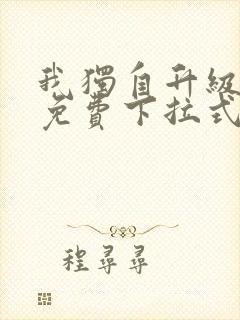 我獨自升級
免費下拉式
程尋尋